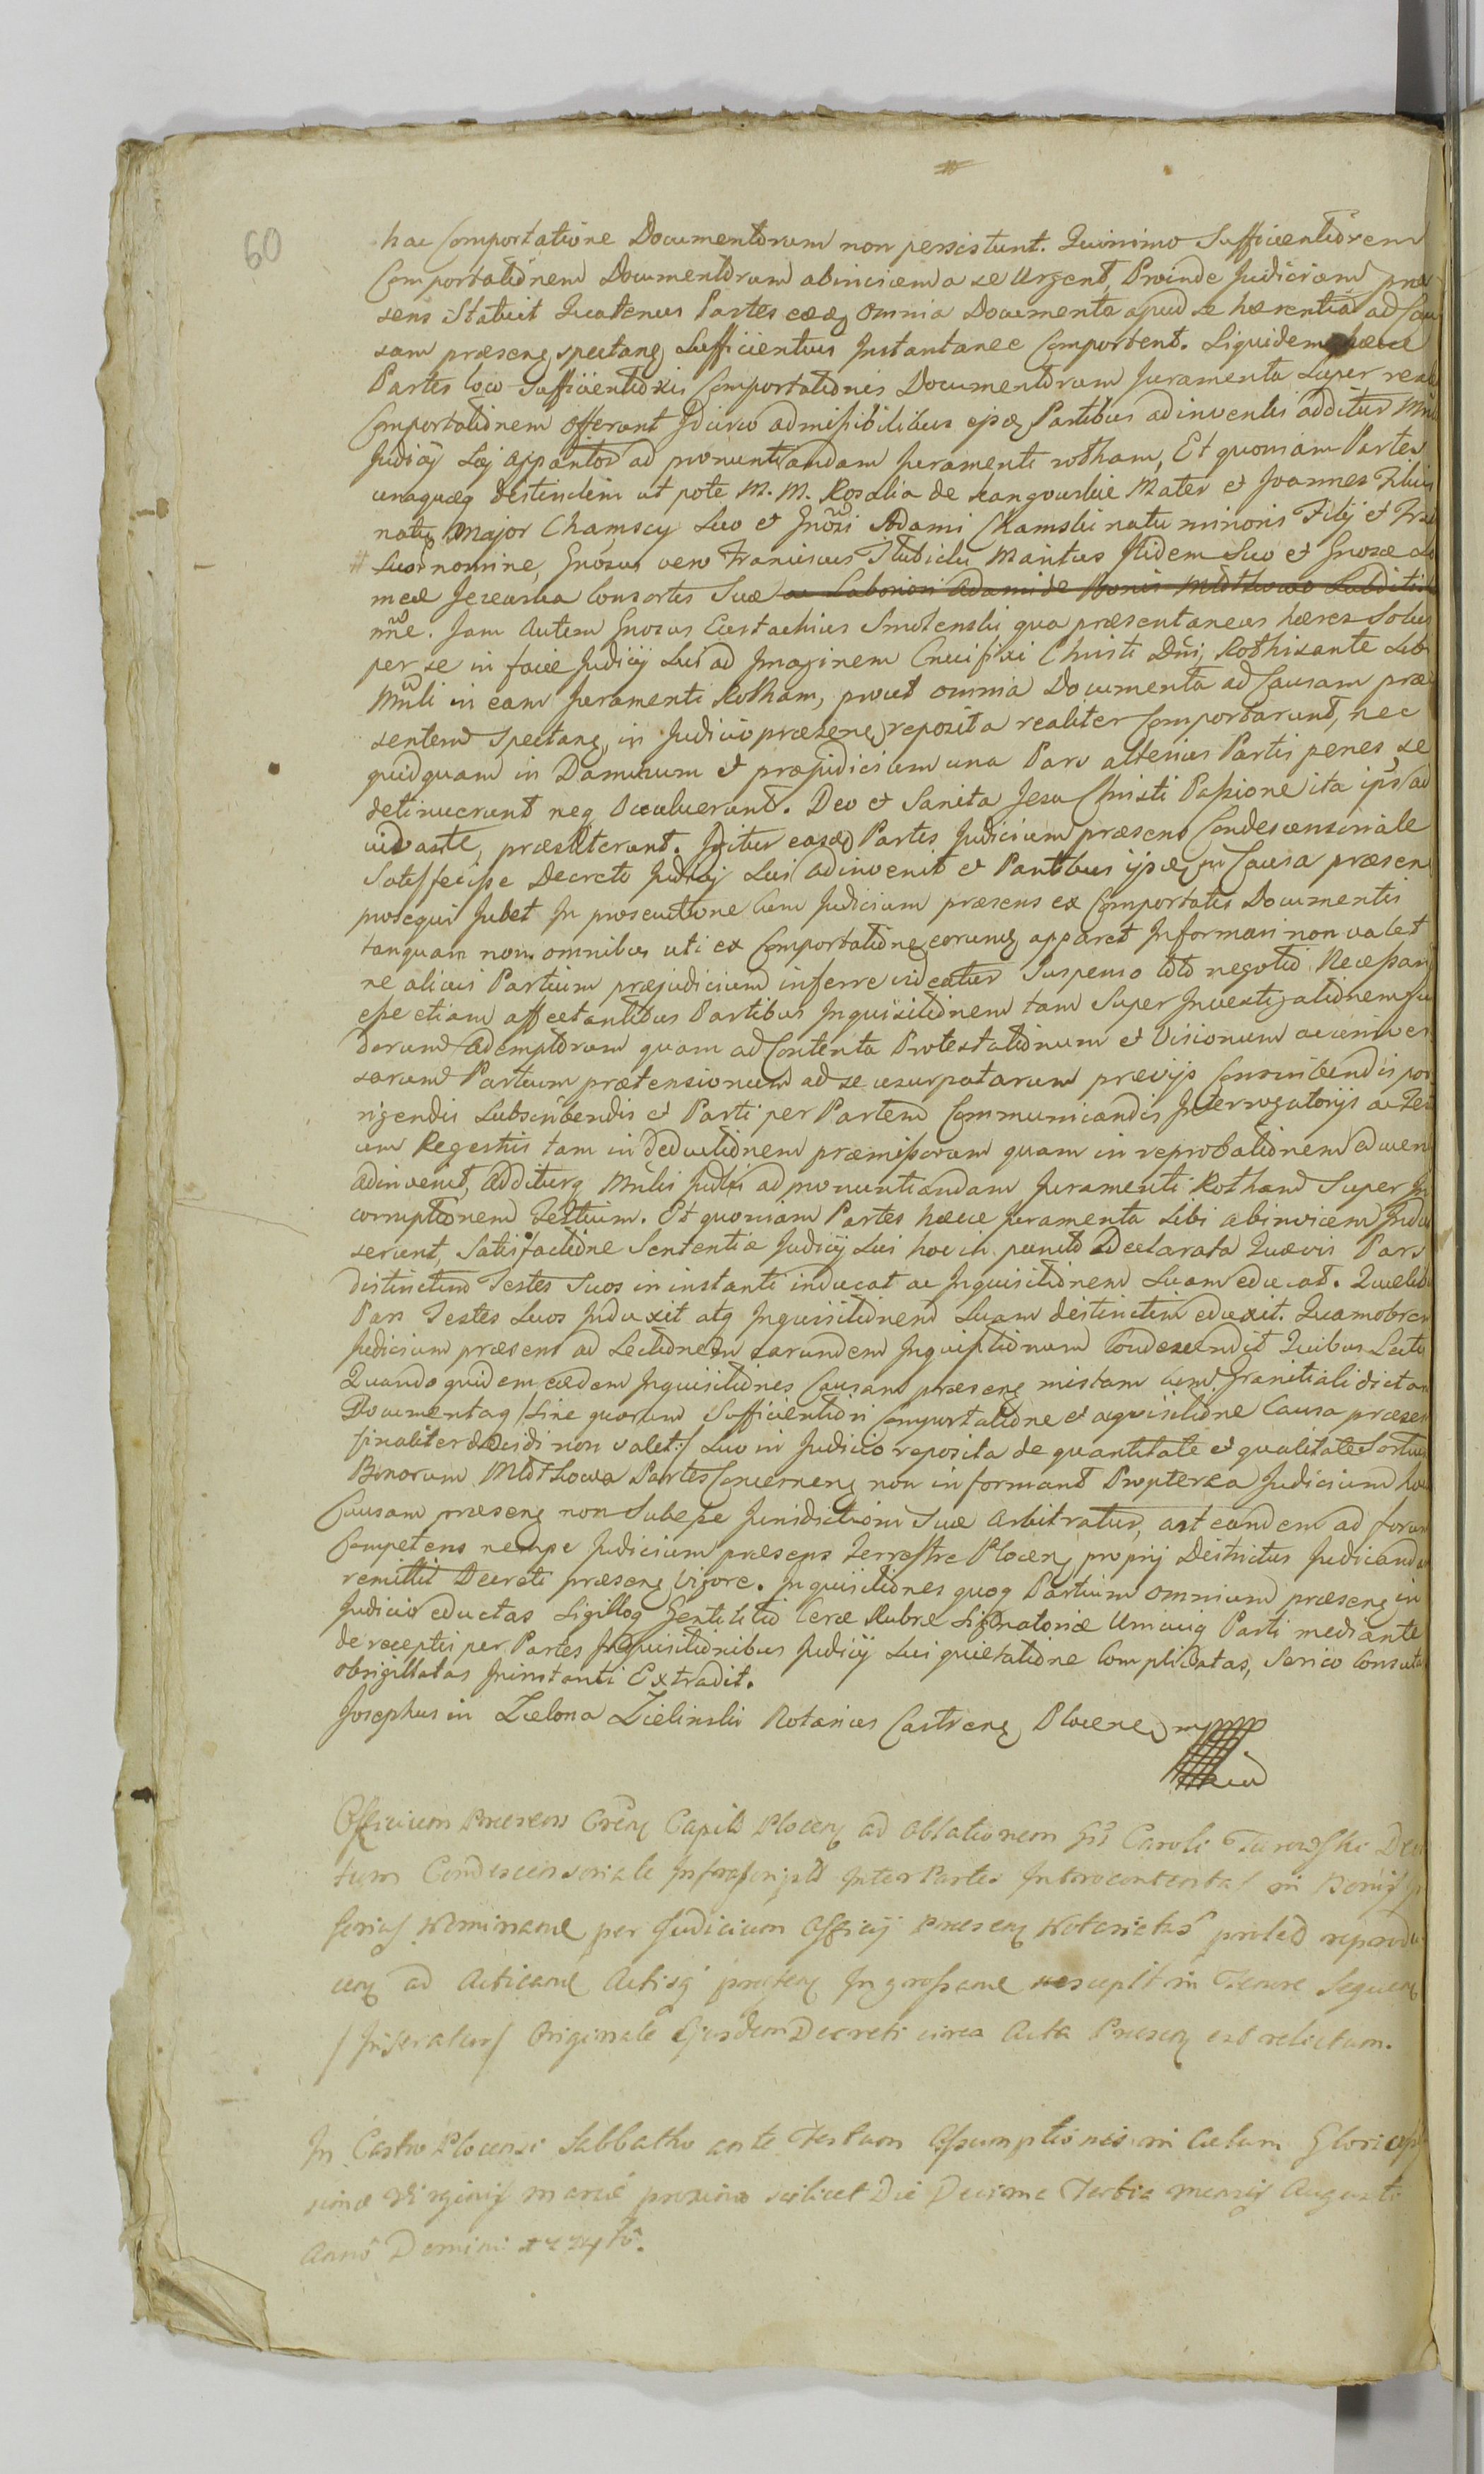 60
hac Comportatione Documentorum non persistunt. Quinimo Sufficientiorem
Comportationem Documentorum abinvicem a se Urgent, Proinde Judicium præ
sens Statuit Quatenus Partes eæq Omnia Documenta apud se hærentia ad Cau
sam præseng spectang Sufficientius Instantanee Comportent. Siquidem hæce
Partes loco Sufficientioris Comportationis Documentorum Juramenta Super realem
Comportationem offerunt Idcirco admissibilibus ejsq Partibus adinventis additur
Judicij Sui ad pronuntiandam Juramenti rotham, Et quoniam Partes
unaquæq distinctim ut pote M. M. Rosalia de Mater et Joannes Filius
natu Major Chamscy Suo et Gnosi Adami Chamski natu minoris Filij et
Suor nomine, Gnosus vero Franciscus Maritus Itidem Suo et Gnosæ
meæ Consortis Suæ ac Laboriosi Adami de Bonis Subditi
nne. Jam Autem Gnosus Eustachius Smolenski qua præsentaneus hæres Solus
per se in facie Judicij Sui ad Imaginem Crucifixi Christi Dni, Rothisante Sibi
Mnli in eam Juramenti Rotham, prout omnia Documenta ad Causam præ
sentem Spectang, in Judicio præseng reposita realiter Comportarunt, nec
quidquam in Damnum et præjudicium una Pars alterius Partis penes se
detinuerunt neq Occuluerunt. Deo et Sancta Jesu Christi Passione ita ipsos ad
iuvante, præstiterunt. Igitur easdo Partes Judicium præsens Condescensoriale
Satisfecisse Decreto Judicij Sui adinvenit et Partibus ijsdeq in Causa præsen
prosequi Jubet In prosecutione cum Judicium præsens ex Comportatis Documentis
tanquam non omnibus uti ex Comportatione eorumq apparet Informari non valet
ne alicui Partium præjudicium inferre videatur Suspenso toto negotio Necessari
esse etiam affectantibus Partibus Inquisitionem tam Super Investigationem fun
dorum ademptorum quam ad Contenta Protestationum et Visionum ac univer
sarum Partium prætensionum ad se usurpatarum prævijs Conscribendis por
rigendis Subscribendis et Parti per Partem Communicandis Interrogatorijs ac Tes
um Regestris tam in deductionem præmissorum quam in reprobationem adver
adinvenit, additurq Mnlis Judij ad pronuntiandam Juramenti Rotham Super In
corruptionem Testium. Et quoniam Partes hæce Juramenta Sibi abinvicem Indul
serunt, Satisfactione Sententiæ Judicij Sui hoc in puncto Declarata Quævis Pars
distinctim Testes Suos in instanti inducat ac Inquisitionem Suam educat. Quælibet
Pars Testes Suos Induxit atq Inquisitionem Suam distinctim eduxit. Quamobrem
Judicium præsens ad Lectionem earundem Inquisitionum Condescendit Quibus Lectis
Quandoquidem eædem Inquisitiones Causam præseng mistam cum Granitiali dictant
Documentaq /Sine quorum Sufficientiori Comportatione et acquisitione Causa præsen
finaliter decidi non valet:/ Suo in Judicio reposita de quantitate et qualitate Sortium
Bonorum Partes Concerneng non informant Propterea Judicium hoc
Causam præseng non Subesse Jurisdictioni Suæ Arbitratur, ast eandem ad forum
Competens nempe Judicium præsens Terrestre Ploceng proprij Districtus Judicandam
remittit Decreti præseng Vigore. Inquisitiones quoq Partium omnium præseng in
Judicio eductas Sigilloq Gentilitio Ceræ Rubræ Signatoriæ Unicuiq Parti mediante
de receptis per Partes Inquisitionibus Judicij Sui quietatione Complicatas, Serico Consutas
obsigillatas Ininstanti Extradit.
Josephus in Zielona Zielinski Notarius Castreng Plocene mppp
Officium Præsens Crēn Capitō Plocen ad Oblationem Caroli Turowski Decre
tum Condescensoriale Infrascripto Inter Partes Introcontentas in Bonis In
ferius per Judicium Officij Præsen Notorietas reprodu
cen ad Acticane Actisq præsen Ingrossane suscepit in Tenore Sequen
/Inseratur/ Originale Ejusdem Decreti circa Acta Præsen est relictum.
In Castro Plocensi Sabbatho ante Festum Assumptionis in Cælum Gloriosis
simæ Virginis Mariæ proximo scilicet Die Decima Tertia mensis Augusti
Anno Domini